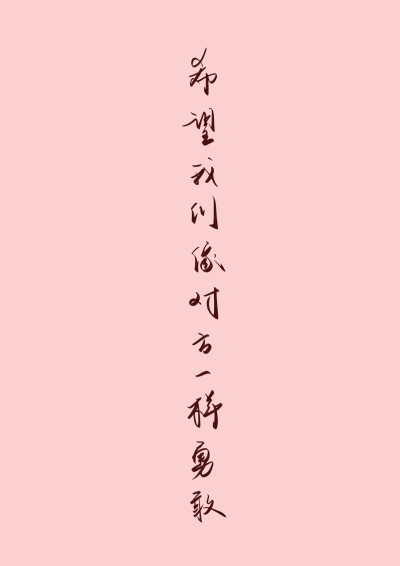 希望我们像对方一样勇敢